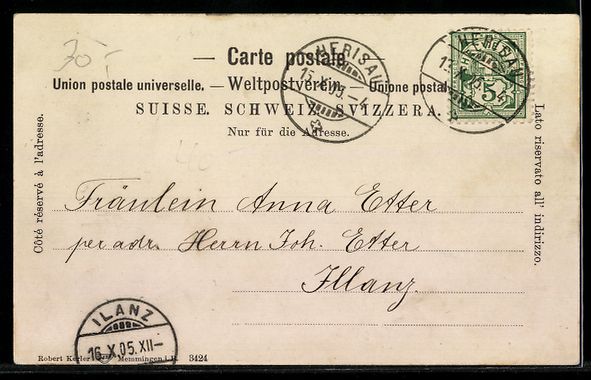 30.-
Carte postale.
Union postale universelle. — Weltpostverein. — Unione postale
SUISSE. SCHWEIZ. SVIZZERA.
Nur für die Adresse.
HERISAU
15.X.05.-4
HERISAU
15.X.05.-4
5
Côté réservé à l'adresse.
Lato riservato all' indirizzo.
40
Fräulein Anna Etter
per adr. Herrn Joh. Etter
Illanz.
ILANZ
16.X.05.XII-
Robert Memmingen i. B. 3424